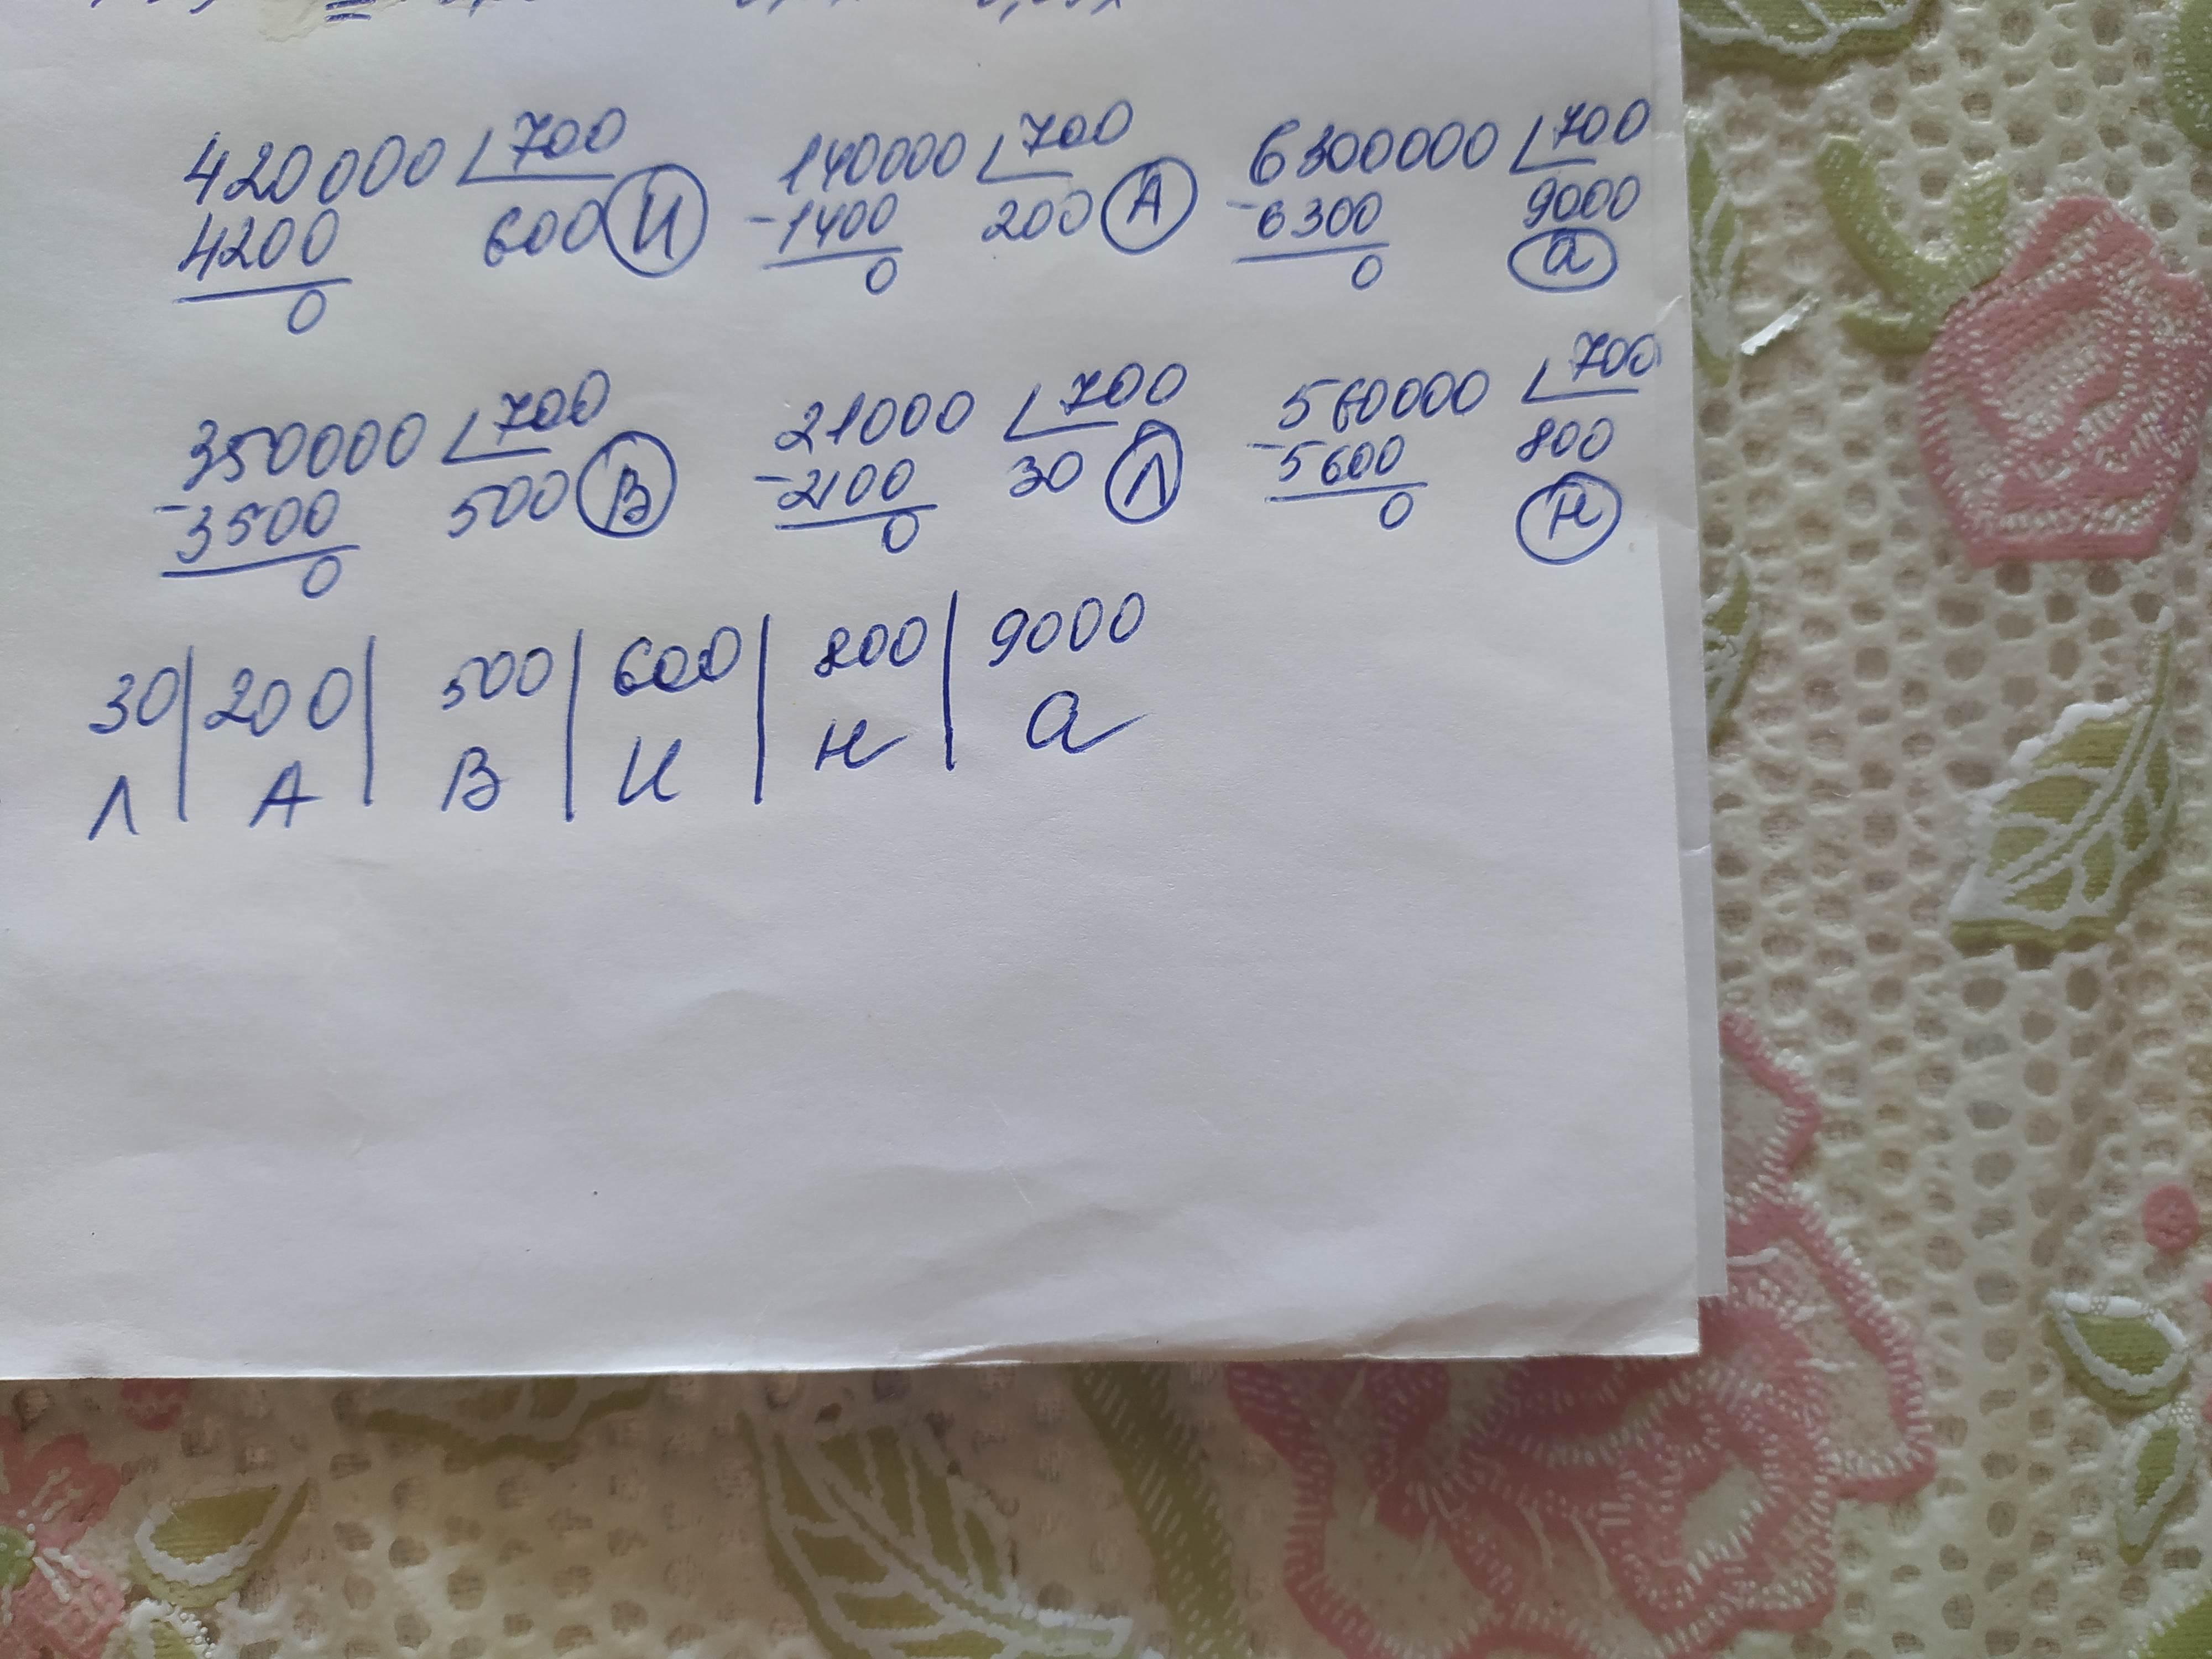 420000 700 140000 700 6300000 700
4200 600 И -1400 200 А -6300 9000
0 0 0 а
350000 700 21000 700 560000 700
-3500 500 В -2100 30 Л -5600 800
0 0 0 н
30 | 200 | 500 | 600 | 800 | 9000
Л | А | В | И | н | а